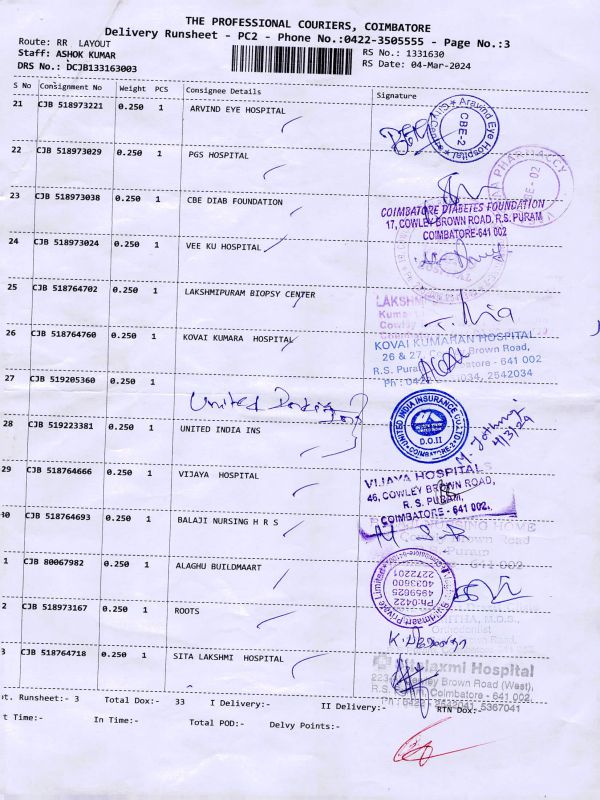 THE PROFESSIONAL COURIERS, COIMBATORE
Delivery Runsheet - PC2 - Phone No.:0422-3505555 - Page No.:3
Route: RR LAYOUT
RS No.: 1331630
Staff: ASHOK KUMAR
RS Date: 04-Mar-2024
DRS No.: DCJB133163003
S No Consignment No Weight PCS Consignee Details Signature
21 CJB 518973221 0.250 1 ARVIND EYE HOSPITAL
Aravind Eye Hospital
CBE-2
22 CJB 518973029 0.250 1 PGS HOSPITAL
23 CJB 518973038 0.250 1 CBE DIAB FOUNDATION
COIMBATORE DIABETES FOUNDATION
17, COWLEY BROWN ROAD, R.S. PURAM
COIMBATORE-641 002
24 CJB 518973024 0.250 1 VEE KU HOSPITAL
25 CJB 518764702 0.250 1 LAKSHMIPURAM BIOPSY CENTER
26 CJB 518764760 0.250 1 KOVAI KUMARA HOSPITAL
KOVAI KUMARAN HOSPITAL
26 & 27, Brown Road,
R.S. Puram - 641 002
Ph : 2542034
27 CJB 519205360 0.250 1 United India Ins
28 CJB 519223381 0.250 1 UNITED INDIA INS
UNITED INDIA INSURANCE CO.LTD
D.O.II
COIMBATORE-2
4/3/24
29 CJB 518764666 0.250 1 VIJAYA HOSPITAL
VIJAYA HOSPITAL
46, COWLEY BROWN ROAD,
R. S. PURAM,
COIMBATORE - 641 002.
30 CJB 518764693 0.250 1 BALAJI NURSING H R S
NURSING HOME
Brown Road
Puram
1 CJB 80067982 0.250 1 ALAGHU BUILDMAART
Private Limited
Ph:0422
4959625
4033600
2272201
2 CJB 518973167 0.250 1 ROOTS
3 CJB 518764718 0.250 1 SITA LAKSHMI HOSPITAL
Hospital
Brown Road (West),
R.S. Coimbatore - 641 002
Ph : 0422 - 2542041, 5367041
t. Runsheet:- 3 Total Dox:- 33 I Delivery:- II Delivery:- RTN Dox:-
t Time:- In Time:- Total POD:- Delvy Points:-